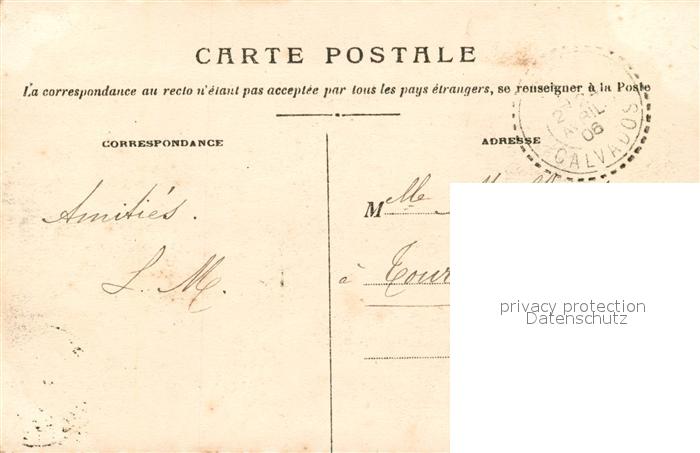 CARTE POSTALE
La correspondance au recto n'étant pas acceptée par tous les pays étrangers, se renseigner à la Poste
CORRESPONDANCE
ADRESSE
AVRIL
06
CALVADOS
Amitiés.
L. M.
Mlle
à
privacy protection
Datenschutz